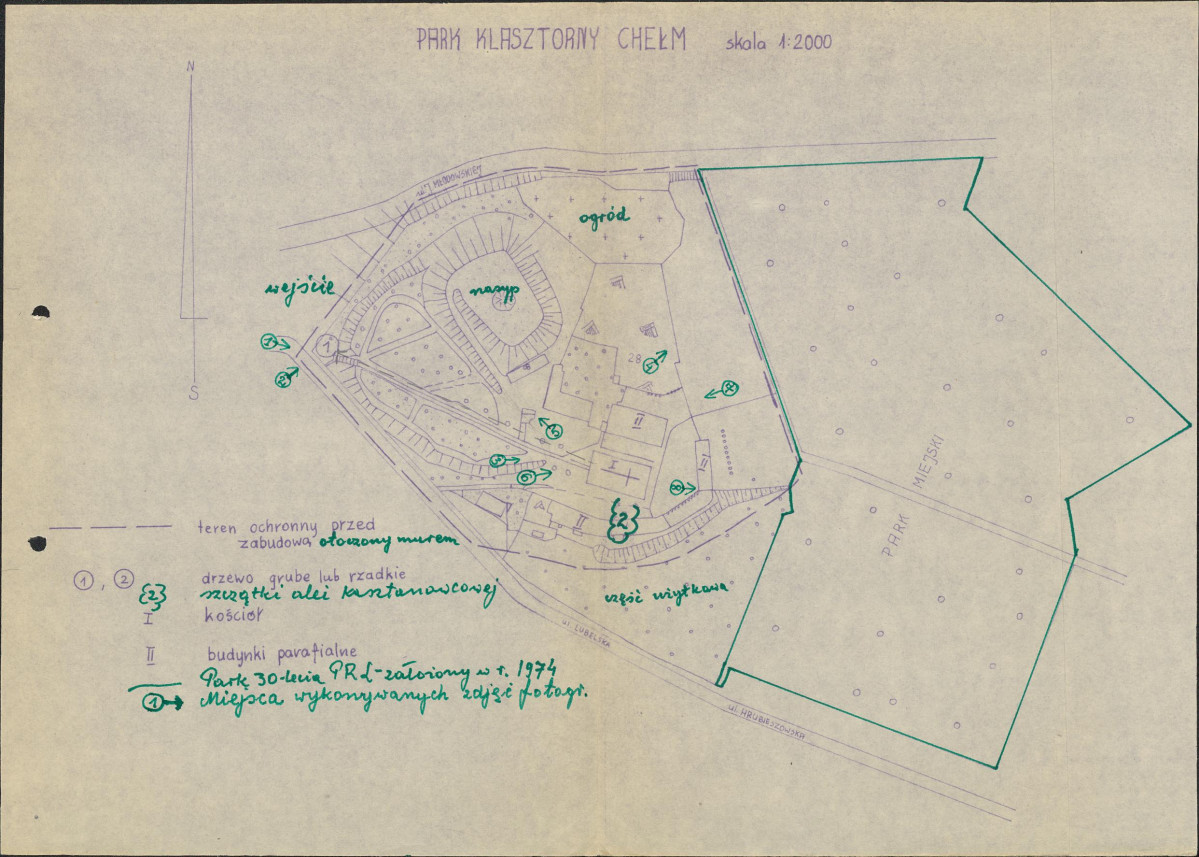 PARK KLASZTORNY CHEŁM skala 1:2000
N
S
ogród
wejście
nasyp
1
28
1
2
3
4
5
6
8
II
I
I=I
II
{2}
PARK MIEJSKI
część użytkowa
ul. LUBELSKA
ul. HRUBIESZOWSKA
teren ochronny przed
zabudową otoczony murem
1, 2 drzewo grube lub rzadkie
{2} szczątki alei kasztanowcowej
I kościół
II budynki parafialne
Park 30-lecia PRL - założony w r. 1974
1 Miejsca wykonywanych zdjęć fotogr.